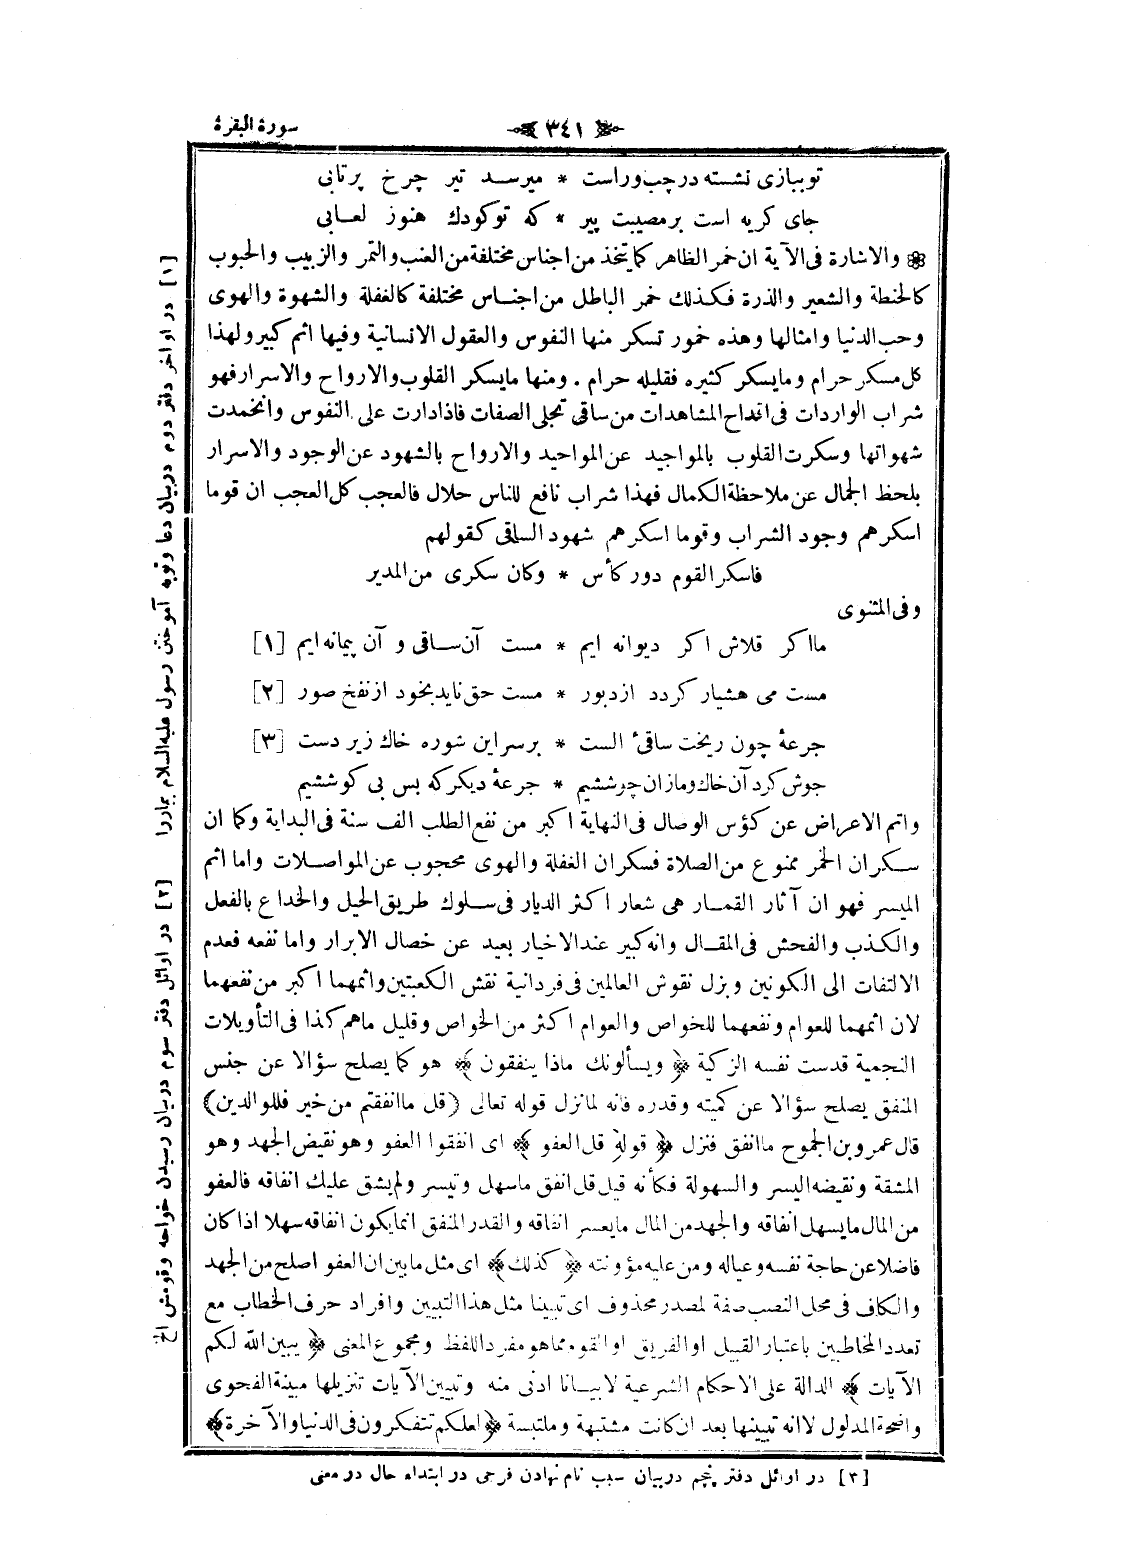 سورة البقرة
٣٤١
توببازى نشسته درچب وراست * ميرسد تير چرخ پرتابى
جاى كريه است برمصيبت پير * كه توكودك هنوز لعابى
والاشارة فى الآية ان خمر الظاهر كما يتخذ من اجناس مختلفة من العنب والتمر والزبيب والحبوب
كالحنطة والشعير والذرة فكذلك خمر الباطل من اجناس مختلفة كالغفلة والشهوة والهوى
وحب الدنيا وامثالها وهذه خمور تسكر منها النفوس والعقول الانسانية وفيها اثم كبير ولهذا
كل مسكر حرام ومايسكر كثيره فقليله حرام . ومنها مايسكر القلوب والارواح والاسرار فهو
شراب الواردات فى اقداح المشاهدات من ساقى تجلى الصفات فاذادارت على النفوس وانخمدت
شهواتها وسكرت القلوب بالمواجيد عن المواحيد والارواح بالشهود عن الوجود والاسرار
بلحظ الجمال عن ملاحظة الكمال فهذا شراب نافع للناس حلال فالعجب كل العجب ان قوما
اسكرهم وجود الشراب وقوما اسكرهم شهود الساقى كقولهم
فاسكر القوم دور كأس * وكان سكرى من المدير
وفى المثنوى
ما اكر قلاش اكر ديوانه ايم * مست آن ساقى و آن پيمانه ايم [١]
مست مى هشيار كردد ازدبور * مست حق نايد بخود از نفخ صور [٢]
جرعۀ چون ريخت ساقئ الست * برسر اين شوره خاك زير دست [٣]
جوش كرد آن خاك وماز ان چوششيم * جرعۀ ديكركه بس بى كوششيم
واثم الاعراض عن كؤس الوصال فى النهاية اكبر من نفع الطلب الف سنة فى البداية وكما ان
سكران الخمر ممنوع من الصلاة فسكران الغفلة والهوى محجوب عن المواصلات واما اثم
الميسر فهو ان آثار القمار هى شعار اكثر الديار فى سلوك طريق الحيل والخداع بالفعل
والكذب والفحش فى المقال وانه كبير عند الاخيار بعيد عن خصال الابرار واما نفعه فعدم
الالتفات الى الكونين وبزل نقوش العالمين فى فردانية نقش الكعبتين واثمهما اكبر من نفعهما
لان اثمهما للعوام ونفعهما للخواص والعوام اكثر من الخواص وقليل ماهم كذا فى التأويلات
النجمية قدست نفسه الزكية ﴿ ويسألونك ماذا ينفقون ﴾ هو كما يصلح سؤالا عن جنس
المنفق يصلح سؤالا عن كميته وقدره فانه لمانزل قوله تعالى (قل ماانفقتم من خير فللوالدين)
قال عمرو بن الجموح ماانفق فنزل ﴿ قوله قل العفو ﴾ اى انفقوا العفو وهو نقيض الجهد وهو
المشقة ونقيضه اليسر والسهولة فكأنه قيل قل انفق ماسهل وتيسر ولم يشق عليك انفاقه فالعفو
من المال مايسهل انفاقه والجهد من المال مايعسر انفاقه والقدر المنفق انمايكون انفاقه سهلا اذا كان
فاضلا عن حاجة نفسه وعياله ومن عليه مؤونته ﴿ كذلك ﴾ اى مثل مابين ان العفو اصلح من الجهد
والكاف فى محل النصب صفة لمصدر محذوف اى تبيينا مثل هذا التبيين وافراد حرف الخطاب مع
تعدد المخاطبين باعتبار القبيل اوالفريق اوالقوم مماهو مفرداللفظ ومجموع المعنى ﴿ يبين الله لكم
الآيات ﴾ الدالة على الاحكام الشرعية لابيانا ادنى منه وتبيين الآيات تنزيلها مبينة الفحوى
واضحة المدلول لاانه تبيينها بعد ان كانت مشتبهة وملتبسة ﴿ لعلكم تتفكرون فى الدنيا والآخرة ﴾
[١] در اواخر دفتر دوم دربيان دعا وتوبه آموختن رسول عليه السلام بيماررا
[٢] در اوائل دفتر سوم دربيان رسيدن خواجه وقومش الخ
[٣] در اوائل دفتر پنجم دربيان سبب نام نهادن فرجى در ابتداء حال در معنى